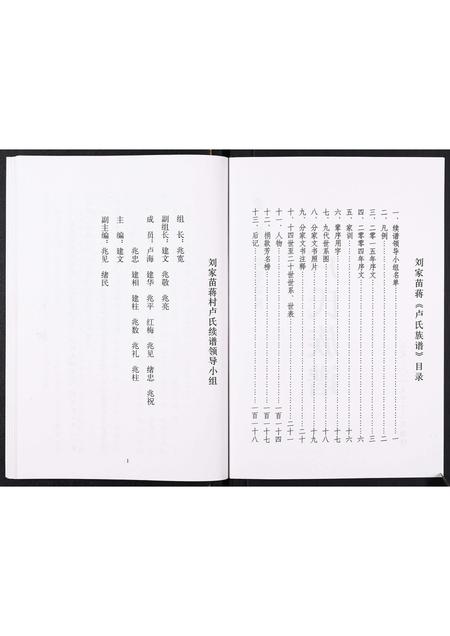 刘家苗蒋《卢氏族谱》目录
一、续谱领导小组名单……一
二、凡例……二
三、二零一五年序文……三
四、二零零四年序文……六
五、家训……十六
六、辈序用字……十七
七、九代世系图……十八
八、分家文书照片……十九
九、分家文书注释……二十
十、十四世至二十世世系 世表……二十一
十一、人物……一百一十四
十二、捐款芳名榜……一百一十七
十三、后记……一百一十八
刘家苗蒋村卢氏续谱领导小组
组 长：兆宽
副组长：建文 兆敬 兆亮
成 员：卢海 建华 兆平 红梅 兆见 绪忠 兆祝
兆忠 建相 建柱 兆数 兆礼 兆柱
主 编：建文
副主编：兆见 绪民
1